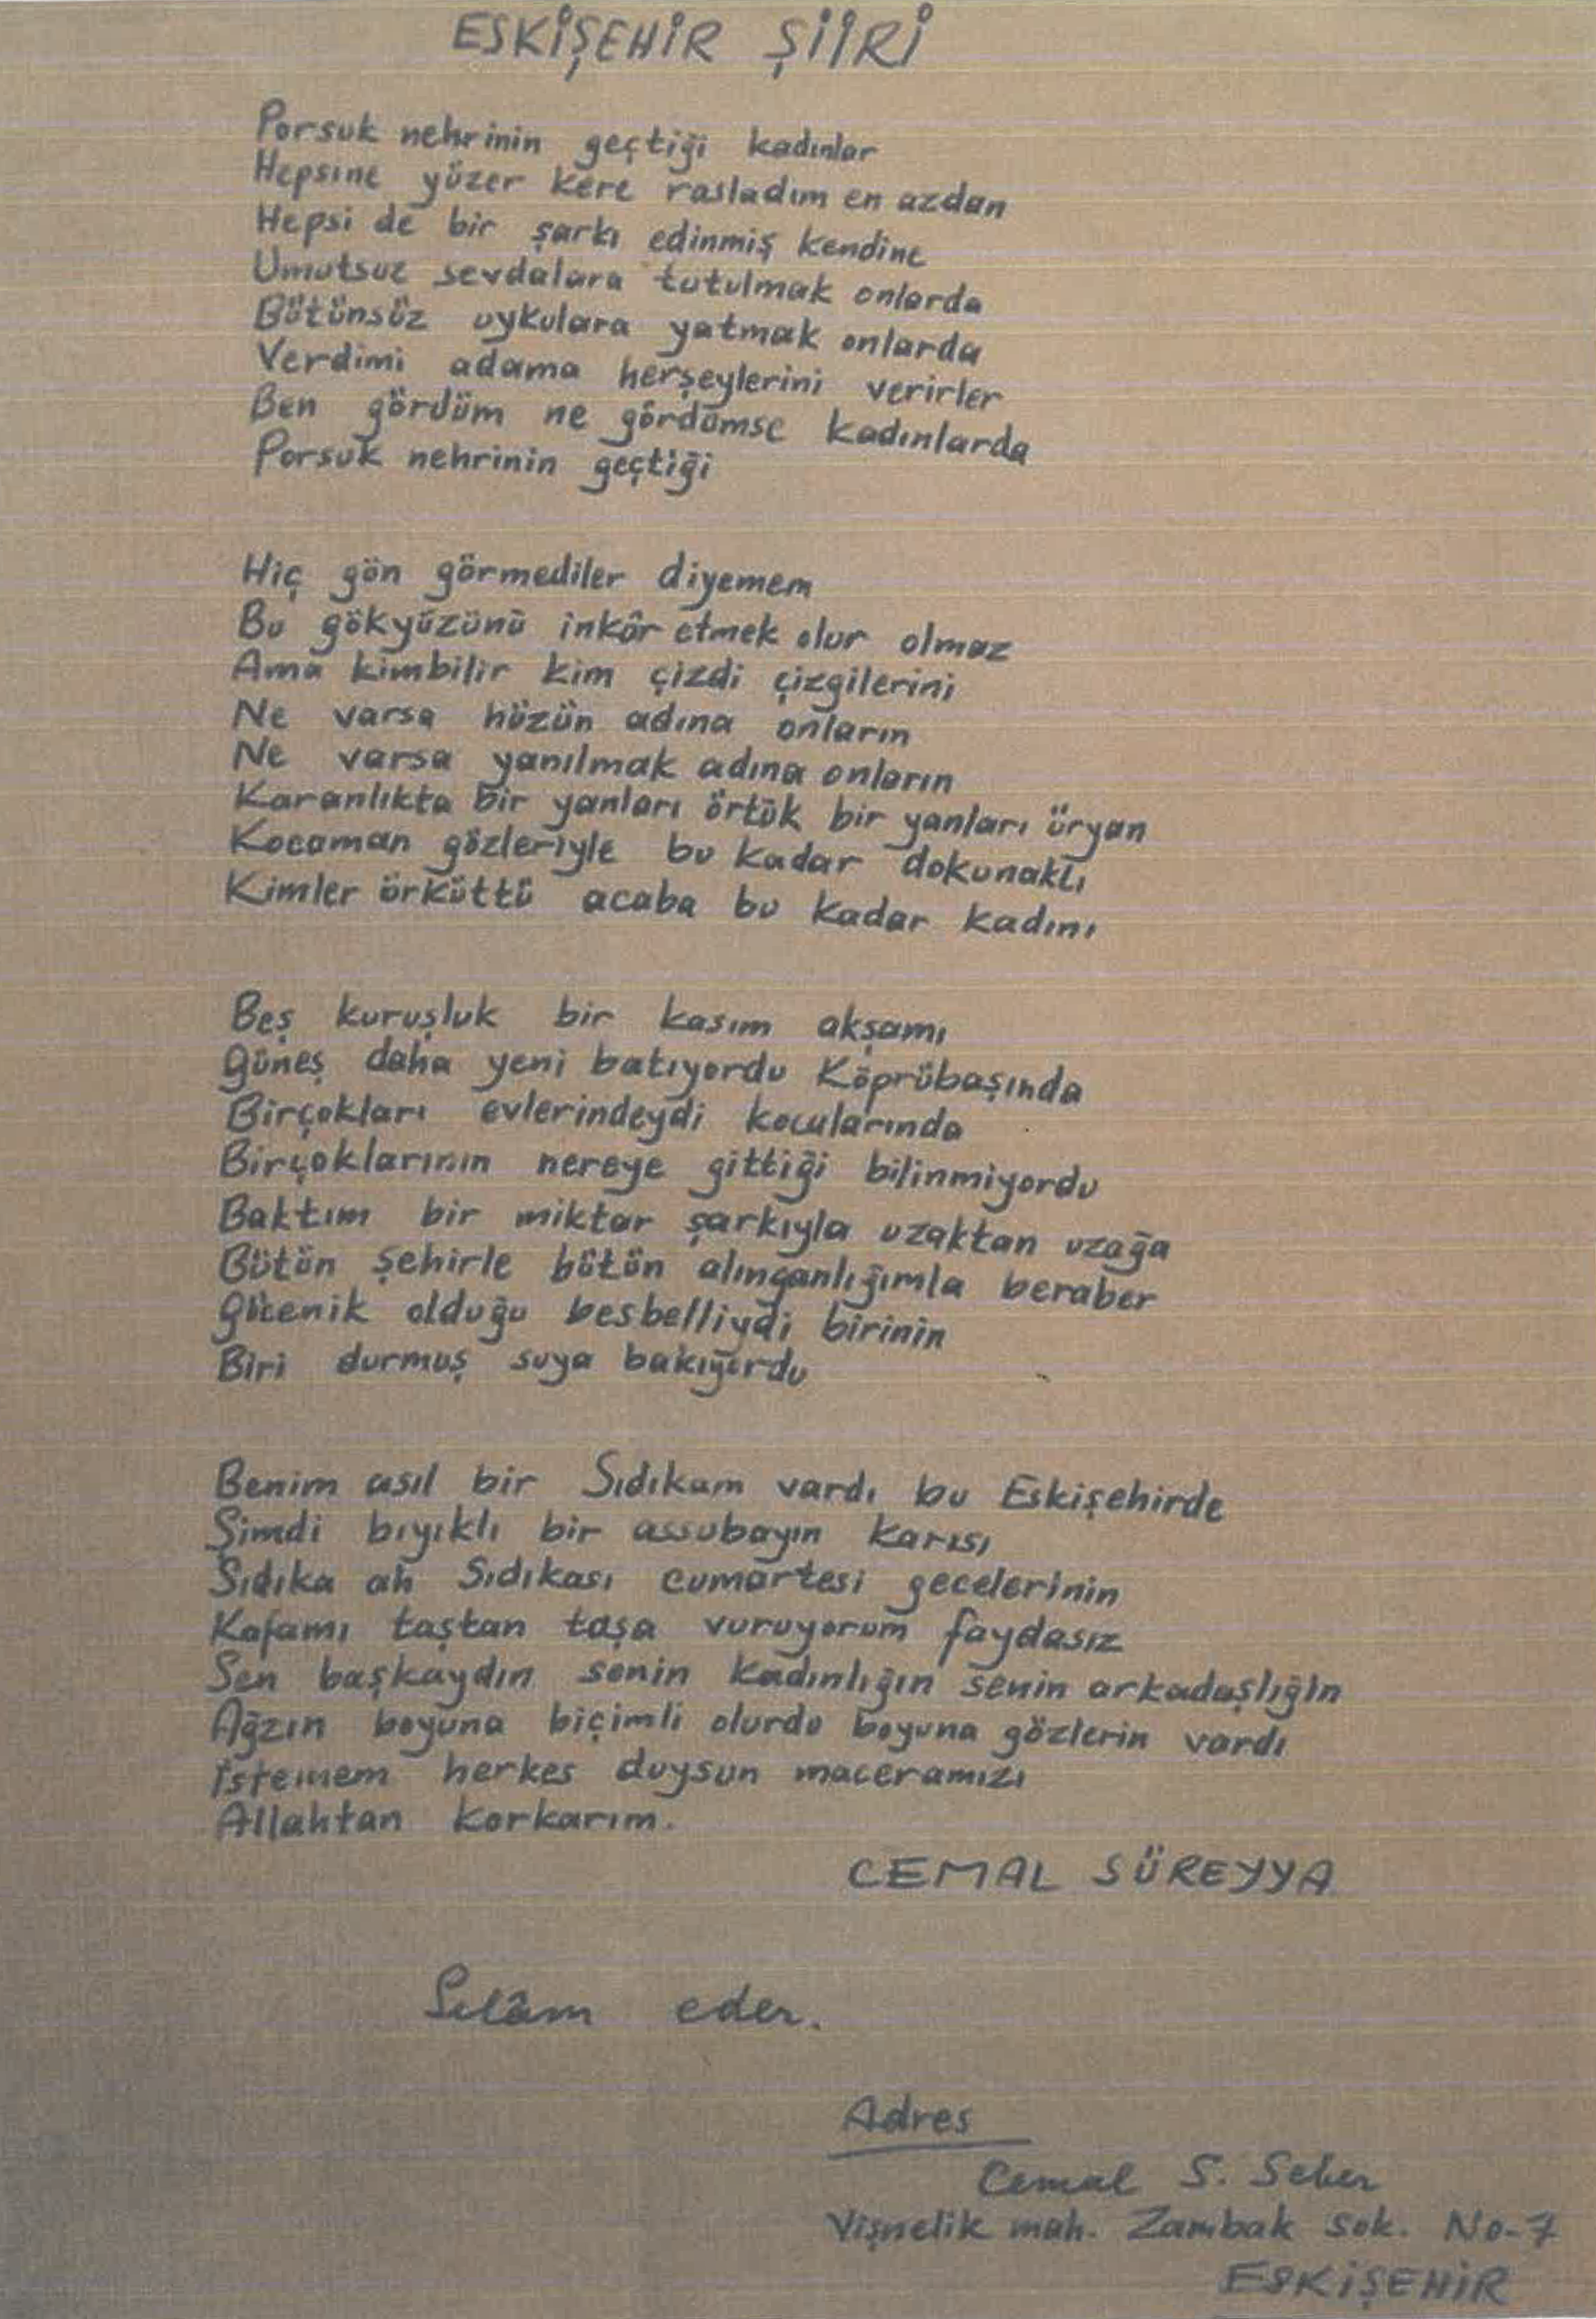 ESKİŞEHİR ŞİİRİ
Porsuk nehrinin geçtiği kadınlar
Hepsine yüzer kere rasladım en azdan
Hepsi de bir şarkı edinmiş kendine
Umutsuz sevdalara tutulmak onlarda
Bütünsüz uykulara yatmak onlarda
Verdimi adama herşeylerini verirler
Ben gördüm ne gördümse kadınlarda
Porsuk nehrinin geçtiği
Hiç gün görmediler diyemem
Bu gökyüzünü inkâr etmek olur olmaz
Ama kimbilir kim çizdi çizgilerini
Ne varsa hüzün adına onların
Ne varsa yanılmak adına onların
Karanlıkta bir yanları örtük bir yanları üryan
Kocaman gözleriyle bu kadar dokunaklı
Kimler ürküttü acaba bu kadar kadını
Beş kuruşluk bir kasım akşamı
Güneş daha yeni batıyordu Köprübaşında
Birçokları evlerindeydi kocalarında
Birçoklarının nereye gittiği bilinmiyordu
Baktım bir miktar şarkıyla uzaktan uzağa
Bütün şehirle bütün alınganlığımla beraber
Gücenik olduğu besbelliydi birinin
Biri durmuş suya bakıyordu
Benim asıl bir Sıdıkam vardı bu Eskişehirde
Şimdi bıyıklı bir assubayın karısı
Sıdıka ah Sıdıkası cumartesi gecelerinin
Kafamı taştan taşa vuruyorum faydasız
Sen başkaydın senin kadınlığın senin arkadaşlığın
Ağzın boyuna biçimli olurdu boyuna gözlerin vardı
İstemem herkes duysun maceramızı
Allahtan korkarım.
CEMAL SÜREYYA
Selâm eder.
Adres
Cemal S. Seber
Vişnelik mah. Zambak sok. No-7
ESKİŞEHİR